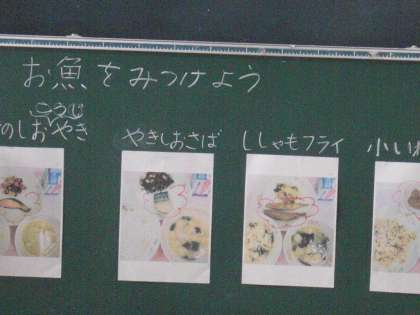 お魚をみつけよう
こうじ
のしおやき
やきしおさば
ししゃもフライ
小い